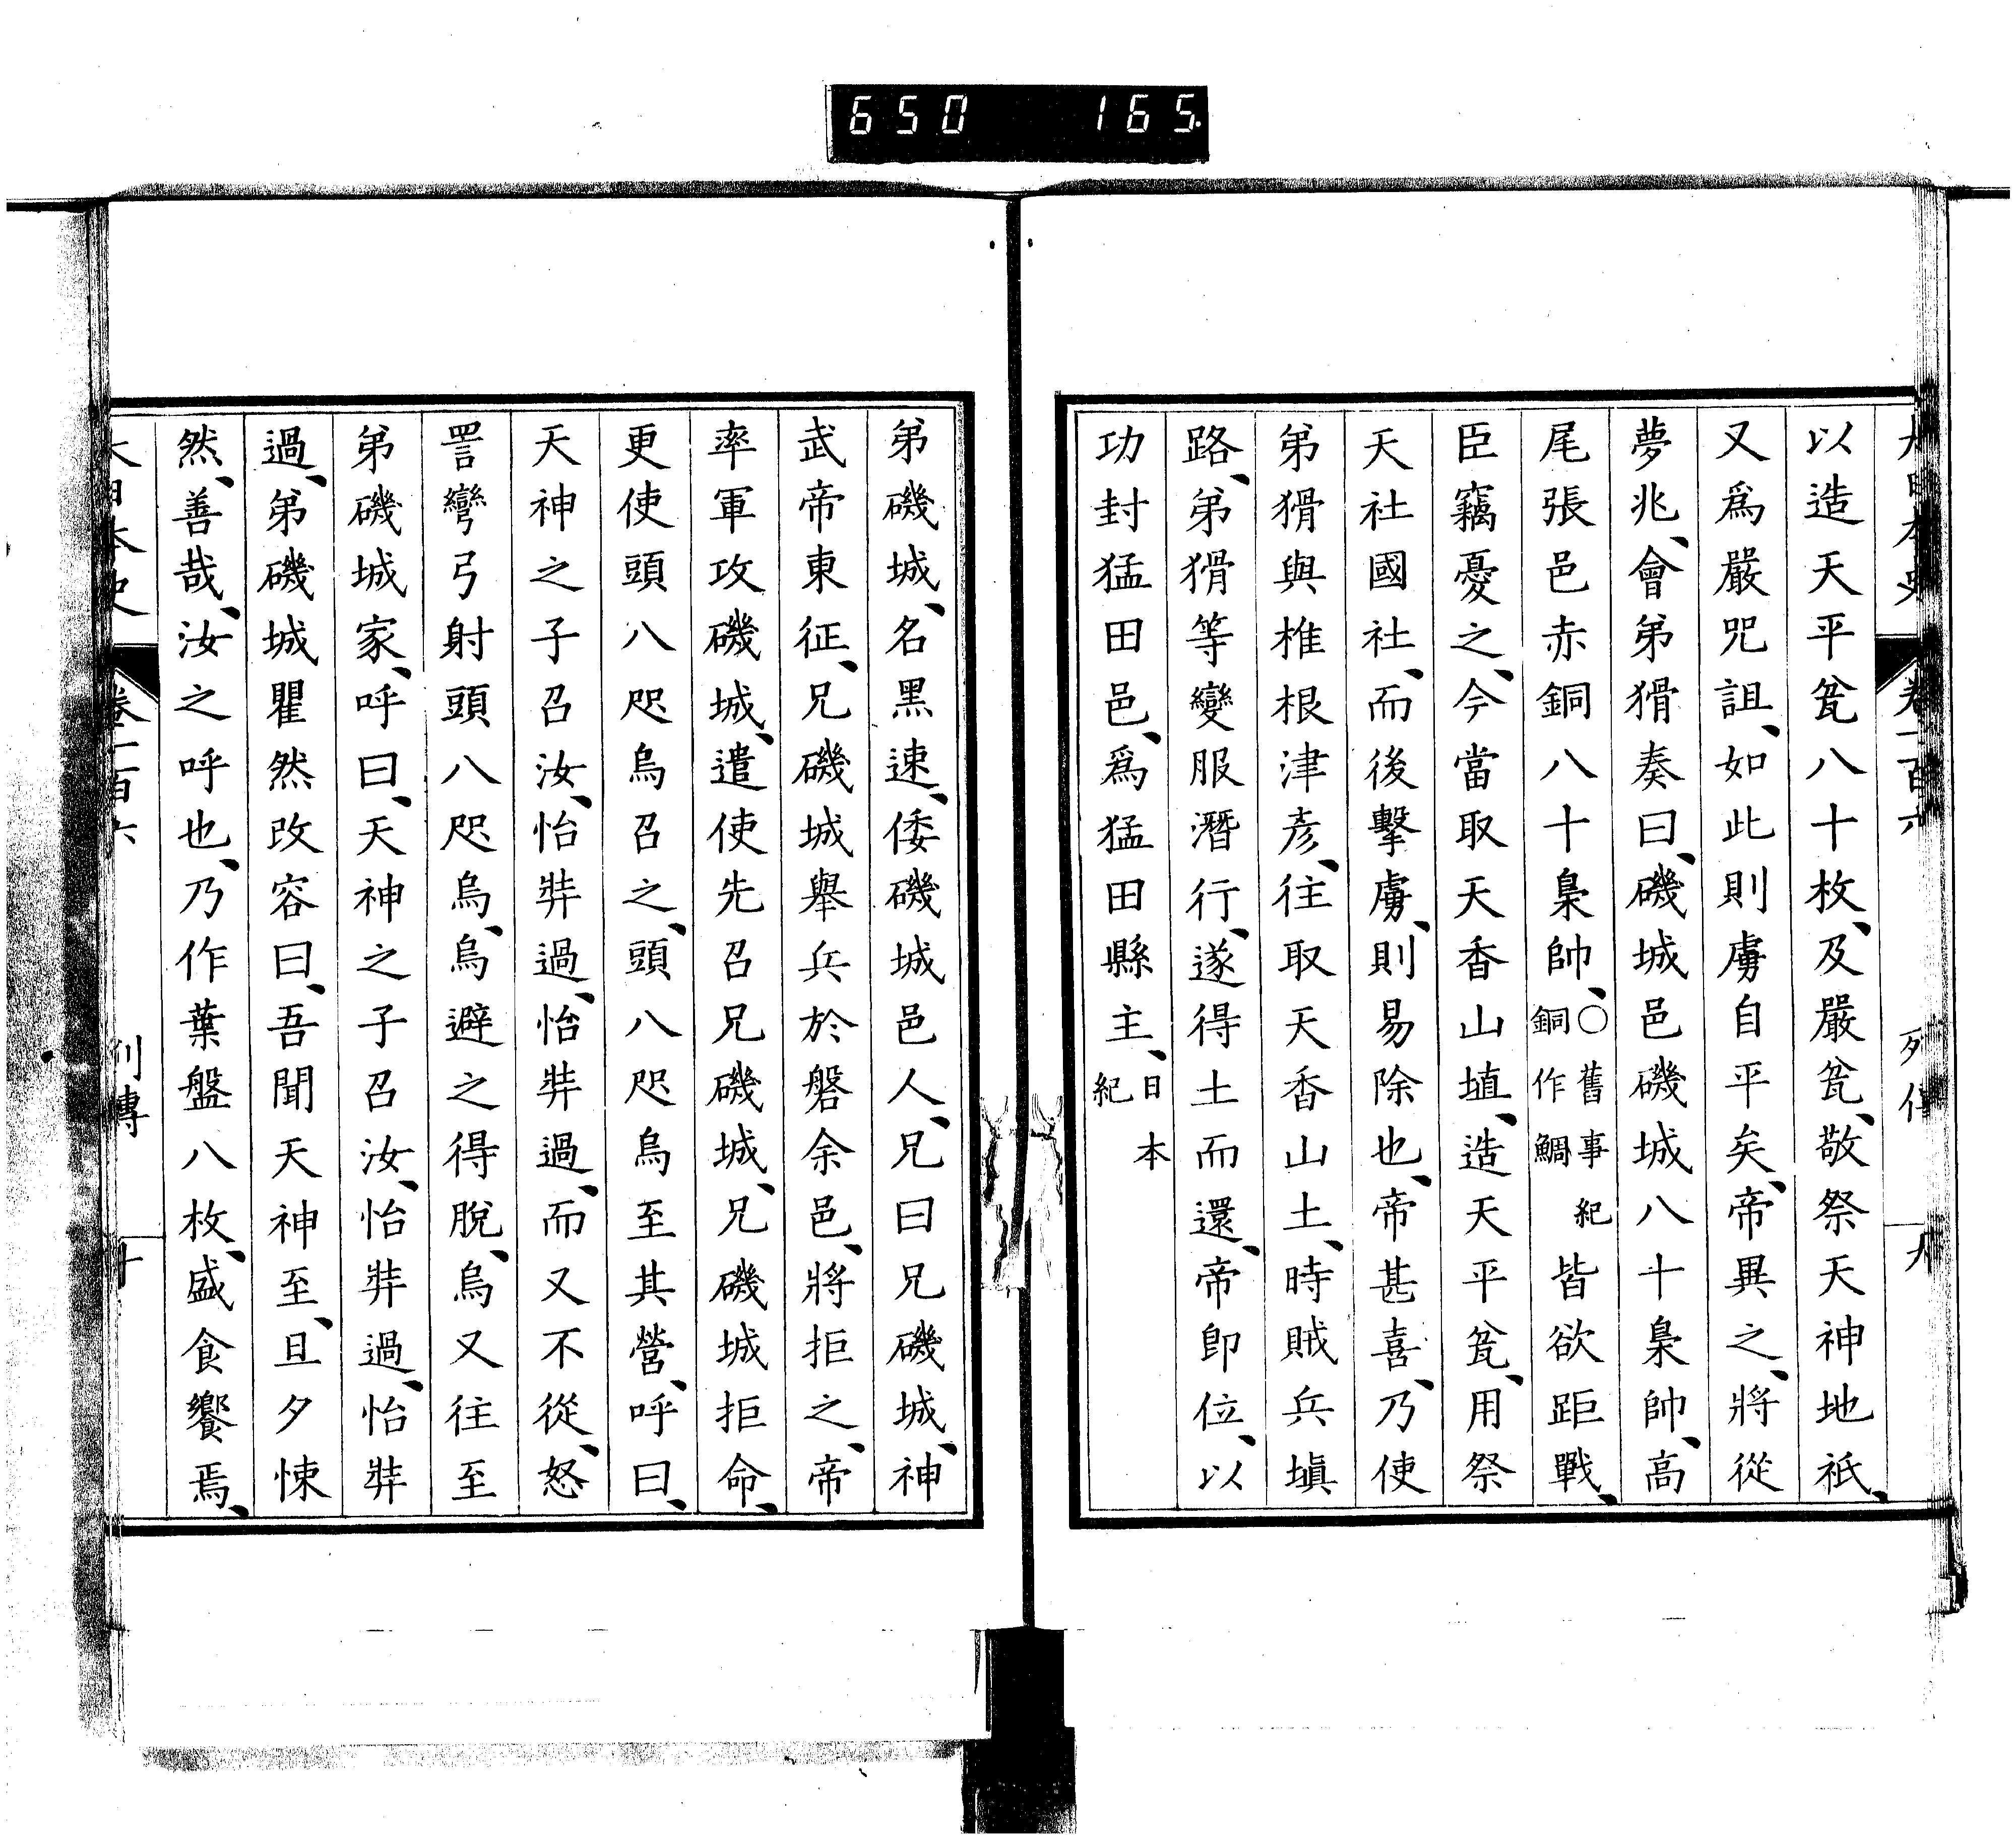 650 165
大日本史 卷一百六 列傳 九
以造天平瓮八十枚、及嚴瓮、敬祭天神地祇、
又爲嚴咒詛、如此則虜自平矣、帝異之、將從
夢兆、會弟猾奏曰、磯城邑磯城八十梟帥、高
尾張邑赤銅八十梟帥、○舊事紀銅作鯛皆欲距戰、
臣竊憂之、今當取天香山埴、造天平瓮、用祭
天社國社、而後擊虜、則易除也、帝甚喜、乃使
弟猾與椎根津彥、往取天香山土、時賊兵塡
路、弟猾等變服潛行、遂得土而還、帝卽位、以
功封猛田邑、爲猛田縣主、日本紀
弟磯城、名黑速、倭磯城邑人、兄曰兄磯城、神
武帝東征、兄磯城舉兵於磐余邑、將拒之、帝
率軍攻磯城、遣使先召兄磯城、兄磯城拒命、
更使頭八咫烏召之、頭八咫烏至其營、呼曰、
天神之子召汝、怡弉過、怡弉過、而又不從、怒
詈彎弓射頭八咫烏、烏避之得脫、烏又往至
弟磯城家、呼曰、天神之子召汝、怡弉過、怡弉
過、弟磯城瞿然改容曰、吾聞天神至、旦夕悚
然、善哉、汝之呼也、乃作葉盤八枚、盛食饗焉、
大日本史 卷一百六 列傳 十